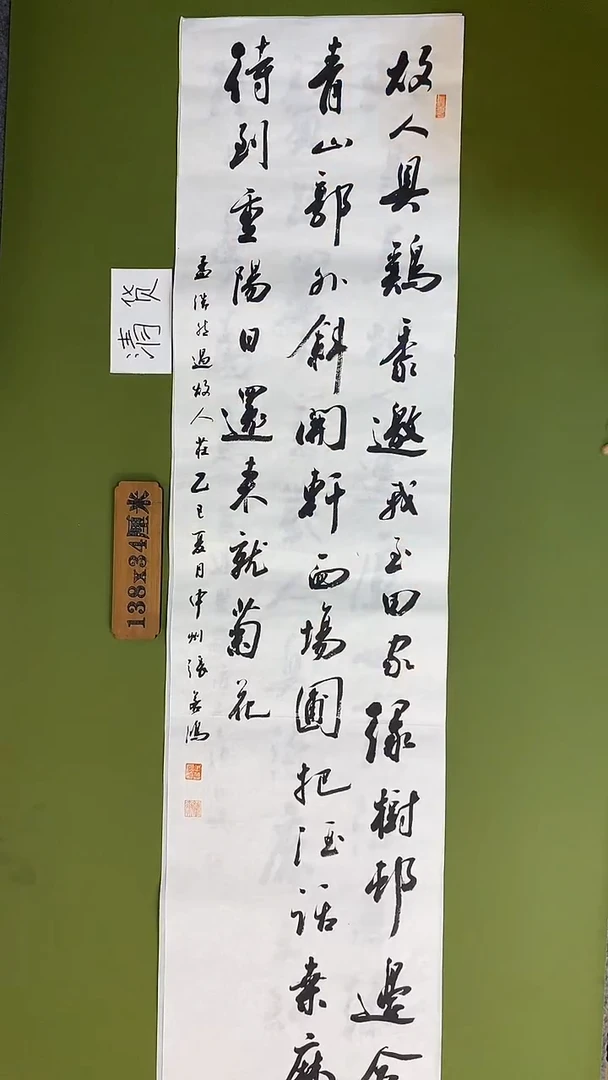 故人具鷄黍邀我至田家緑樹邨邊合
青山郭外斜開軒面場圃把酒話桑麻
待到重陽日還来就菊花
孟浩然過故人莊乙巳夏月中州張善鴻
清货
138x34厘米